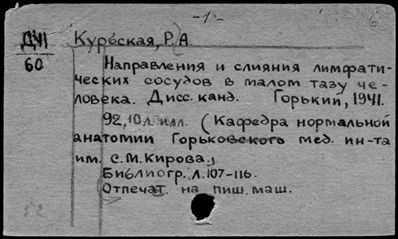 -1-
ДЧ1 Курбская, Р. А.
60
Направления и слияния лимфати-
ческих сосудов в малом тазу че-
ловека. Дисс. канд. Горький, 1941.
92, 10 л. илл. (Кафедра нормальной
анатомии Горьковского мед. ин-та
им. С. М. Кирова.)
Библиогр. л. 107-116.
Отпечат. на пиш. маш.